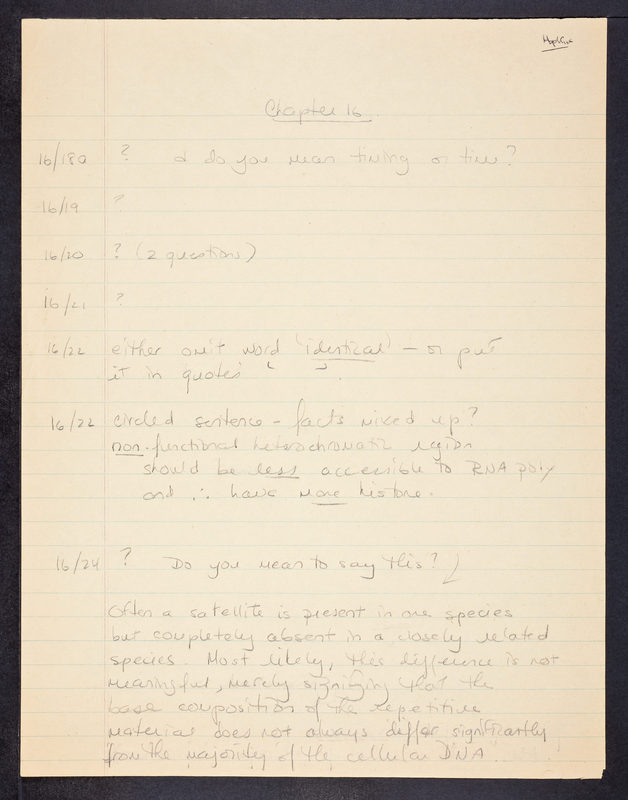 Hopkins
Chapter 16
16/18a ? & do you mean timing or time?
16/19 ?
16/20 ? (2 questions)
16/21 ?
16/22 either omit word 'identical' - or put
it in quotes ' '.
16/22 circled sentence - facts mixed up?
non-functional heterochromatic region
should be less accessible to RNA poly
and ∴ have more histone.
16/24 ? Do you mean to say this?
Often a satellite is present in one species
but completely absent in a closely related
species. Most likely, this difference is not
meaningful, merely signifying that the
base composition of the repetitive
material does not always differ significantly
from the majority of the cellular DNA.